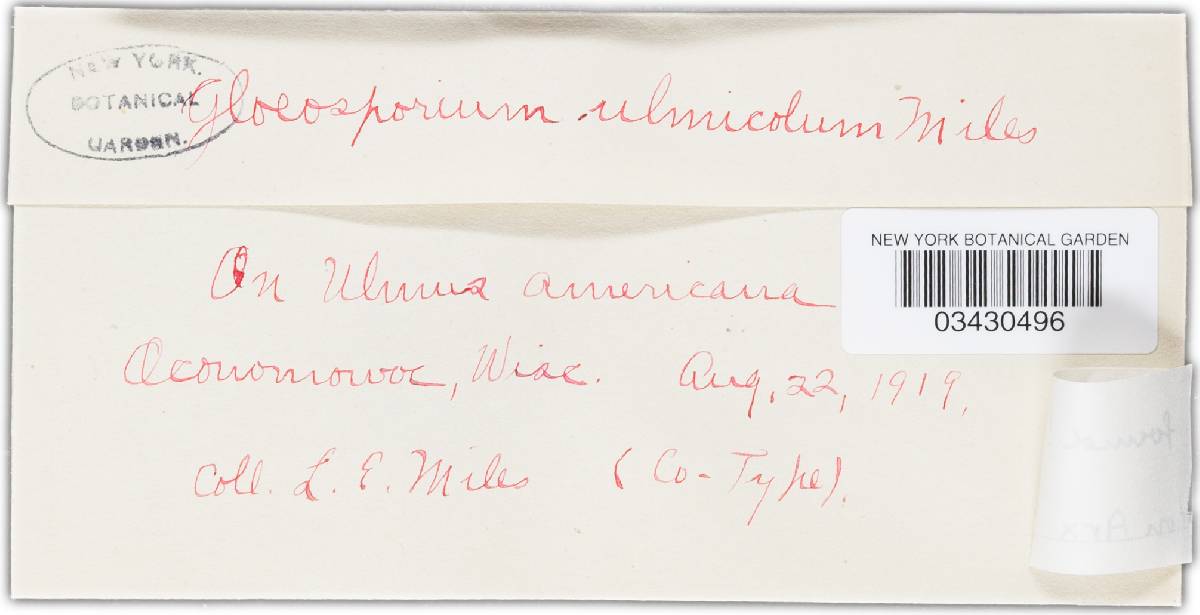 NEW YORK
BOTANICAL
GARDEN.
Gloeosporium ulmicolum Miles
NEW YORK BOTANICAL GARDEN
03430496
On Ulmus americana
Oconomowoc, Wisc. Aug, 22, 1919,
Coll. L. E. Miles (Co-Type).